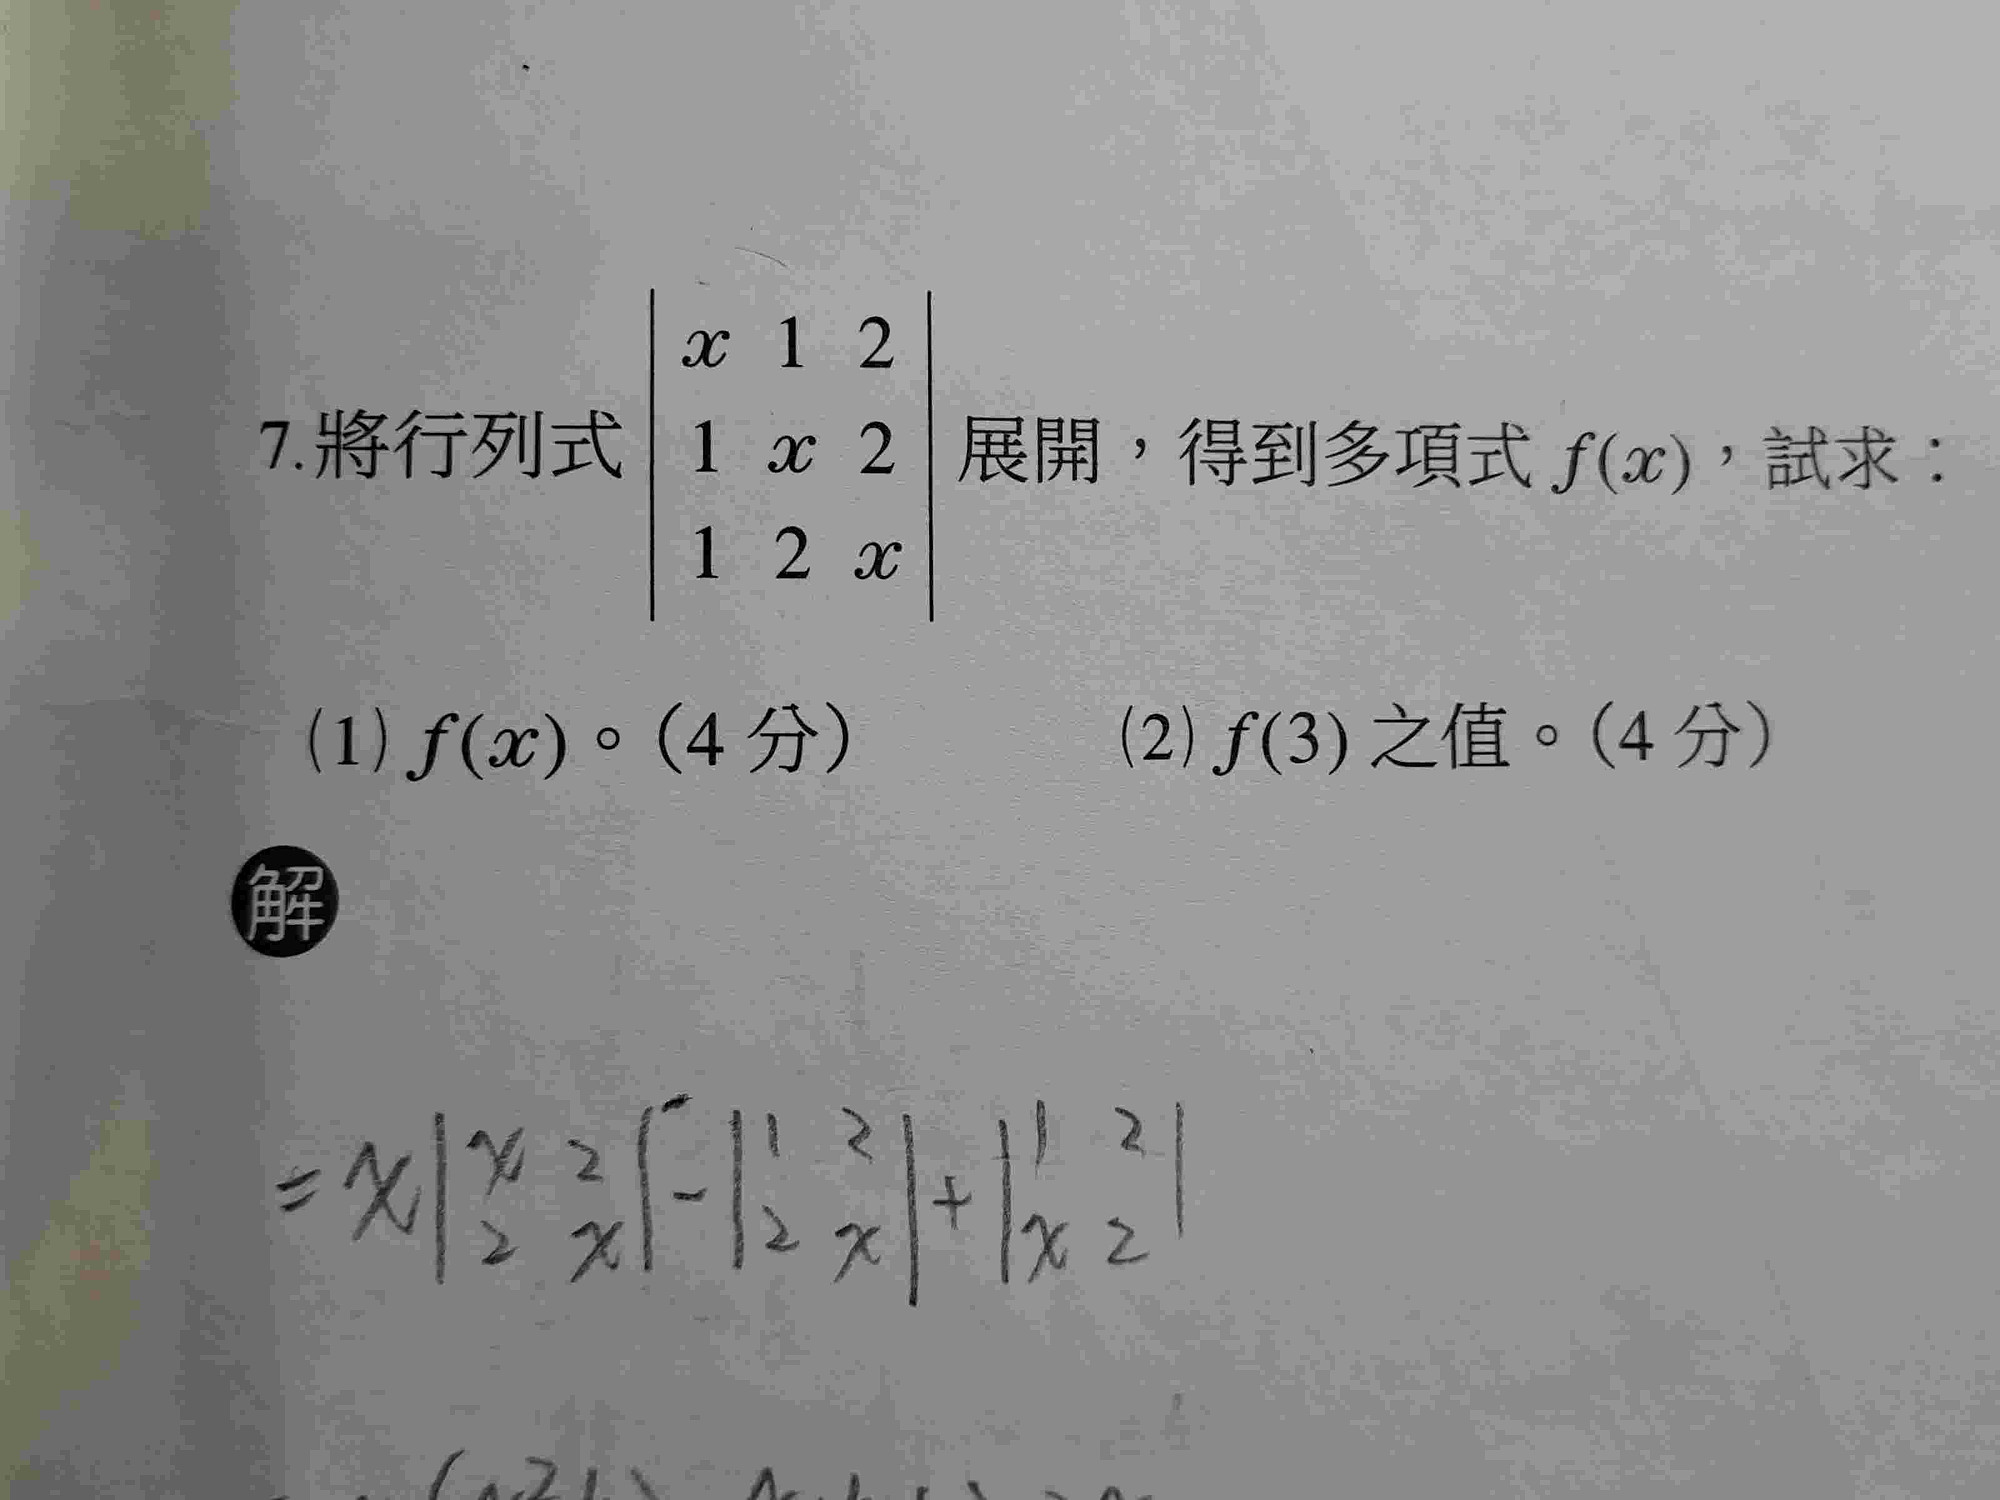 7.將行列式 | x 1 2 |
| 1 x 2 | 展開，得到多項式 f(x)，試求：
| 1 2 x |
(1) f(x)。(4 分) (2) f(3) 之值。(4 分)
解
= x | x 2 | - | 1 2 | + | 1 2 |
| 2 x | | 2 x | | x 2 |